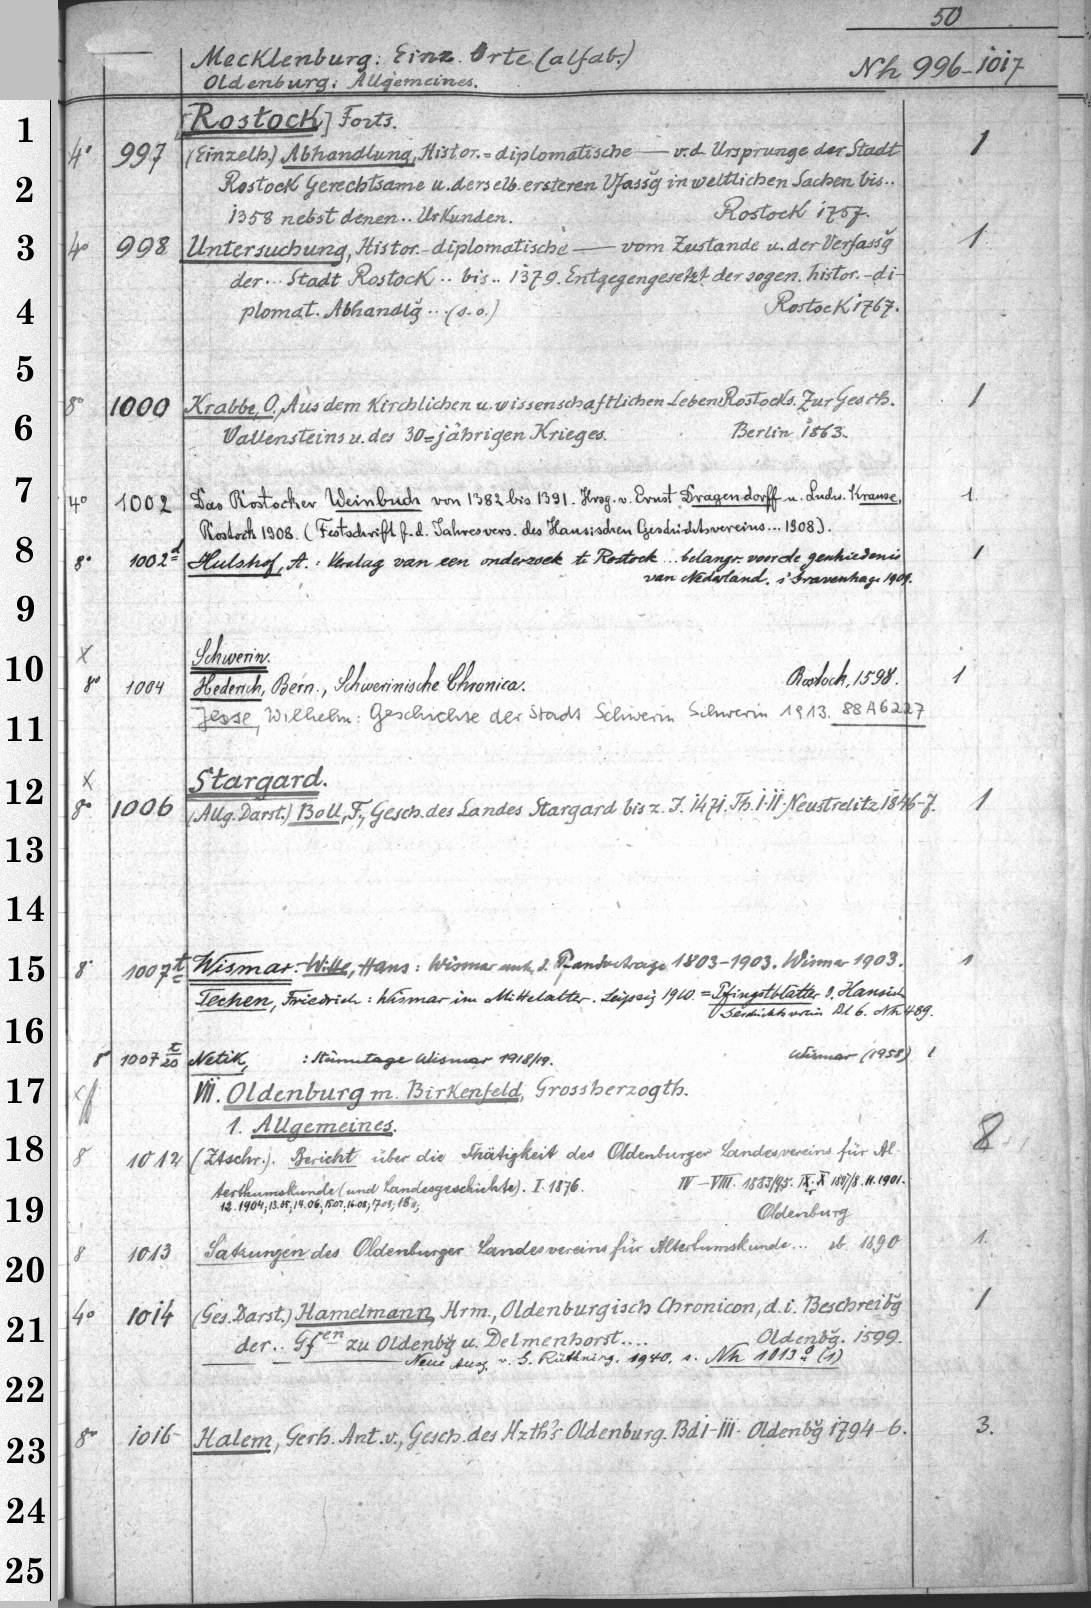 50
Mecklenburg: Einz. Orte (alfab.)
Oldenburg: Allgemeines.
Nh 996-1017
1
[Rostock] Forts.
4° 997 (Einzelh.) Abhandlung, Histor.=diplomatische — v.d. Ursprunge der Stadt 1
2
Rostock Gerechtsame u. derselb. ersteren Vfassg in weltlichen Sachen bis..
1358 nebst denen.. Urkunden. Rostock 1757.
3
4° 998 Untersuchung, Histor.-diplomatische — vom Zustande u. der Verfassg 1
der... Stadt Rostock.. bis.. 1379. Entgegengesetzt der sogen. histor.-di-
4
plomat. Abhandlg... (s.o.) Rostock 1767.
5
8° 1000 Krabbe, O., Aus dem kirchlichen u. wissenschaftlichen Leben Rostocks. Zur Gesch. 1
6
Wallensteins u. des 30=jährigen Krieges. Berlin 1863.
7
4° 1002 Das Rostocker Weinbuch von 1382 bis 1391. Hrsg. v. Ernst Dragendorff u. Ludw. Krause, 1.
Rostock 1908. (Festschrift f. d. Jahresvers. des Hansischen Geschichtsvereins... 1908).
8
8° 1002d Hulshof, A.: Verslag van een onderzoek te Rostock... belangr. voor de geschiedenis 1
van Nederland. s'Gravenhage 1909.
9
X Schwerin.
10
8° 1004 Hederich, Bern., Schwerinische Chronica. Rostock, 1598. 1
11
Jesse, Wilhelm: Geschichte der Stadt Schwerin Schwerin 1913. 88 A 6227
X Stargard.
12
8° 1006 (Allg. Darst.) Boll, F., Gesch. des Landes Stargard bis z. J. 1471. Th. I-II. Neustrelitz 1846-7. 1
13
14
15
8° 1007t Wismar. Witte, Hans: Wismar unt. d. Pfandvertrage 1803-1903. Wismar 1903. 1
Techen, Friedrich: Wismar im Mittelalter. Leipzig 1910. = Pfingstblätter d. Hansisch.
Geschichtsverein Bl 6. Nh 489.
16
8° 1007 t/20 Netik, : Sturmtage Wismar 1918/19. Wismar (1958) 1
17
VII. Oldenburg m. Birkenfeld, Grossherzogth.
1. Allgemeines.
18
8 1012 (Ztschr.). Bericht über die Thätigkeit des Oldenburger Landesvereins für Al- 8
terthumskunde (und Landesgeschichte). I. 1876. IV-VIII. 1883/95. IX. X 1897/8. 11.1901.
19
12.1904; 13.05; 14.06; 15.07; 16.08; 17.09; 18.11;
Oldenburg
20
8 1013 Satzungen des Oldenburger Landesvereins für Alterthumskunde... ib 1890 1.
21
4° 1014 (Ges. Darst.) Hamelmann, Hrm., Oldenburgisch Chronicon, d.i. Beschreibg 1
der.. Gfen zu Oldenbg u. Delmenhorst.... Oldenbg. 1599.
Neue Ausg. v. G. Rüthning. 1940. s. Nh 1013a (1)
22
23
8° 1016 Halem, Gerh. Ant. v., Gesch. des Hzth's Oldenburg. Bd I-III. Oldenbg 1794-6. 3.
24
25